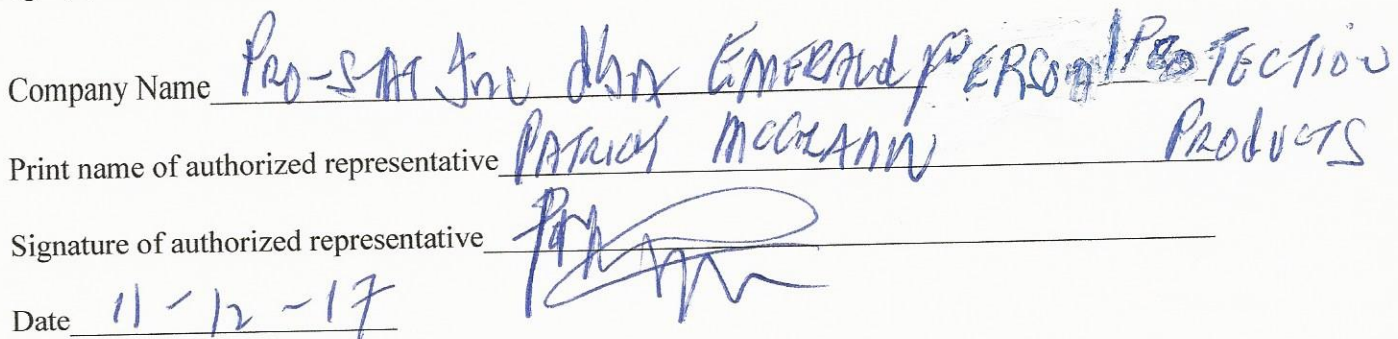 Company Name PRO-SAT Inc dba EMERALD PERSONAL PROTECTION
Print name of authorized representative PATRICK MCGRANN PRODUCTS
Signature of authorized representative
Date 11-12-17